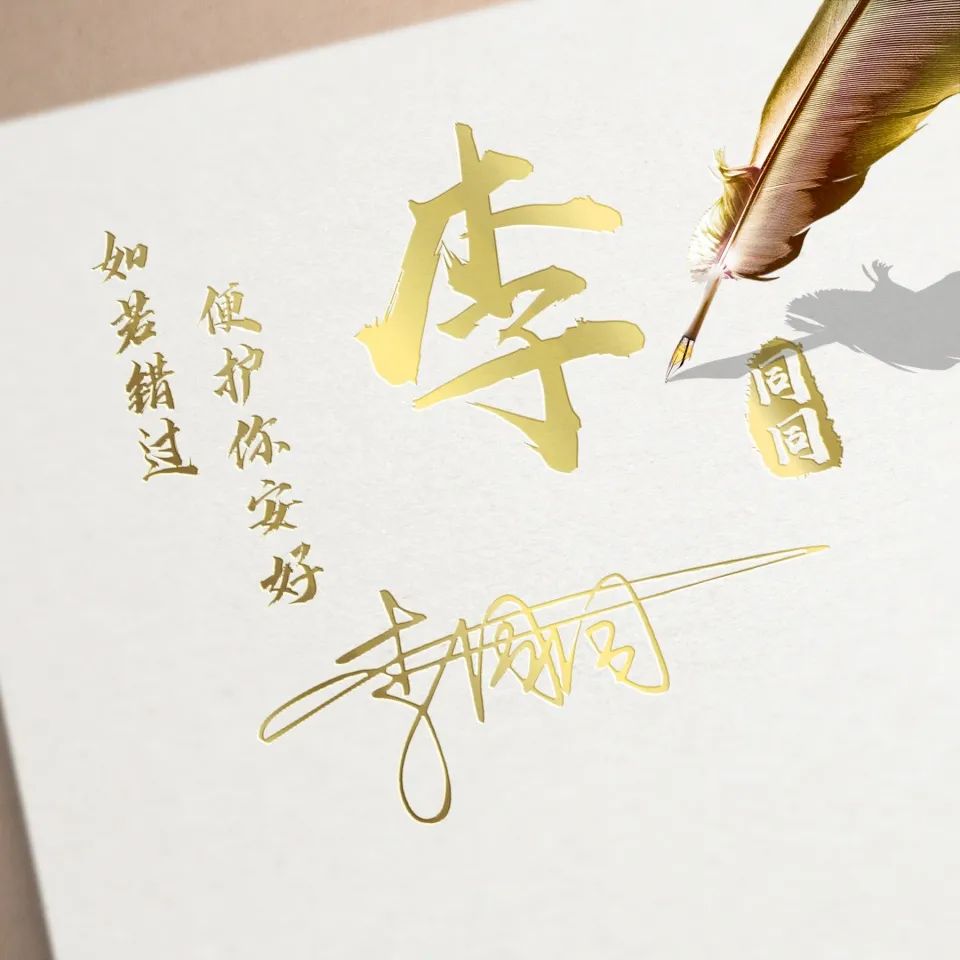 如若错过
便护你安好
李
同同
李同同